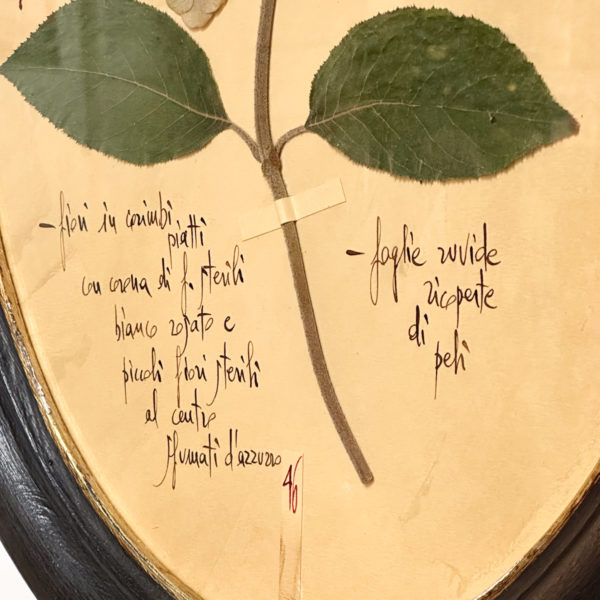 - fiori in corimbi
piatti
con corona di f. sterili
bianco rosato e
piccoli fiori sterili
al centro
sfumati d'azzurro
46
- foglie ruvide
ricoperte
di
peli